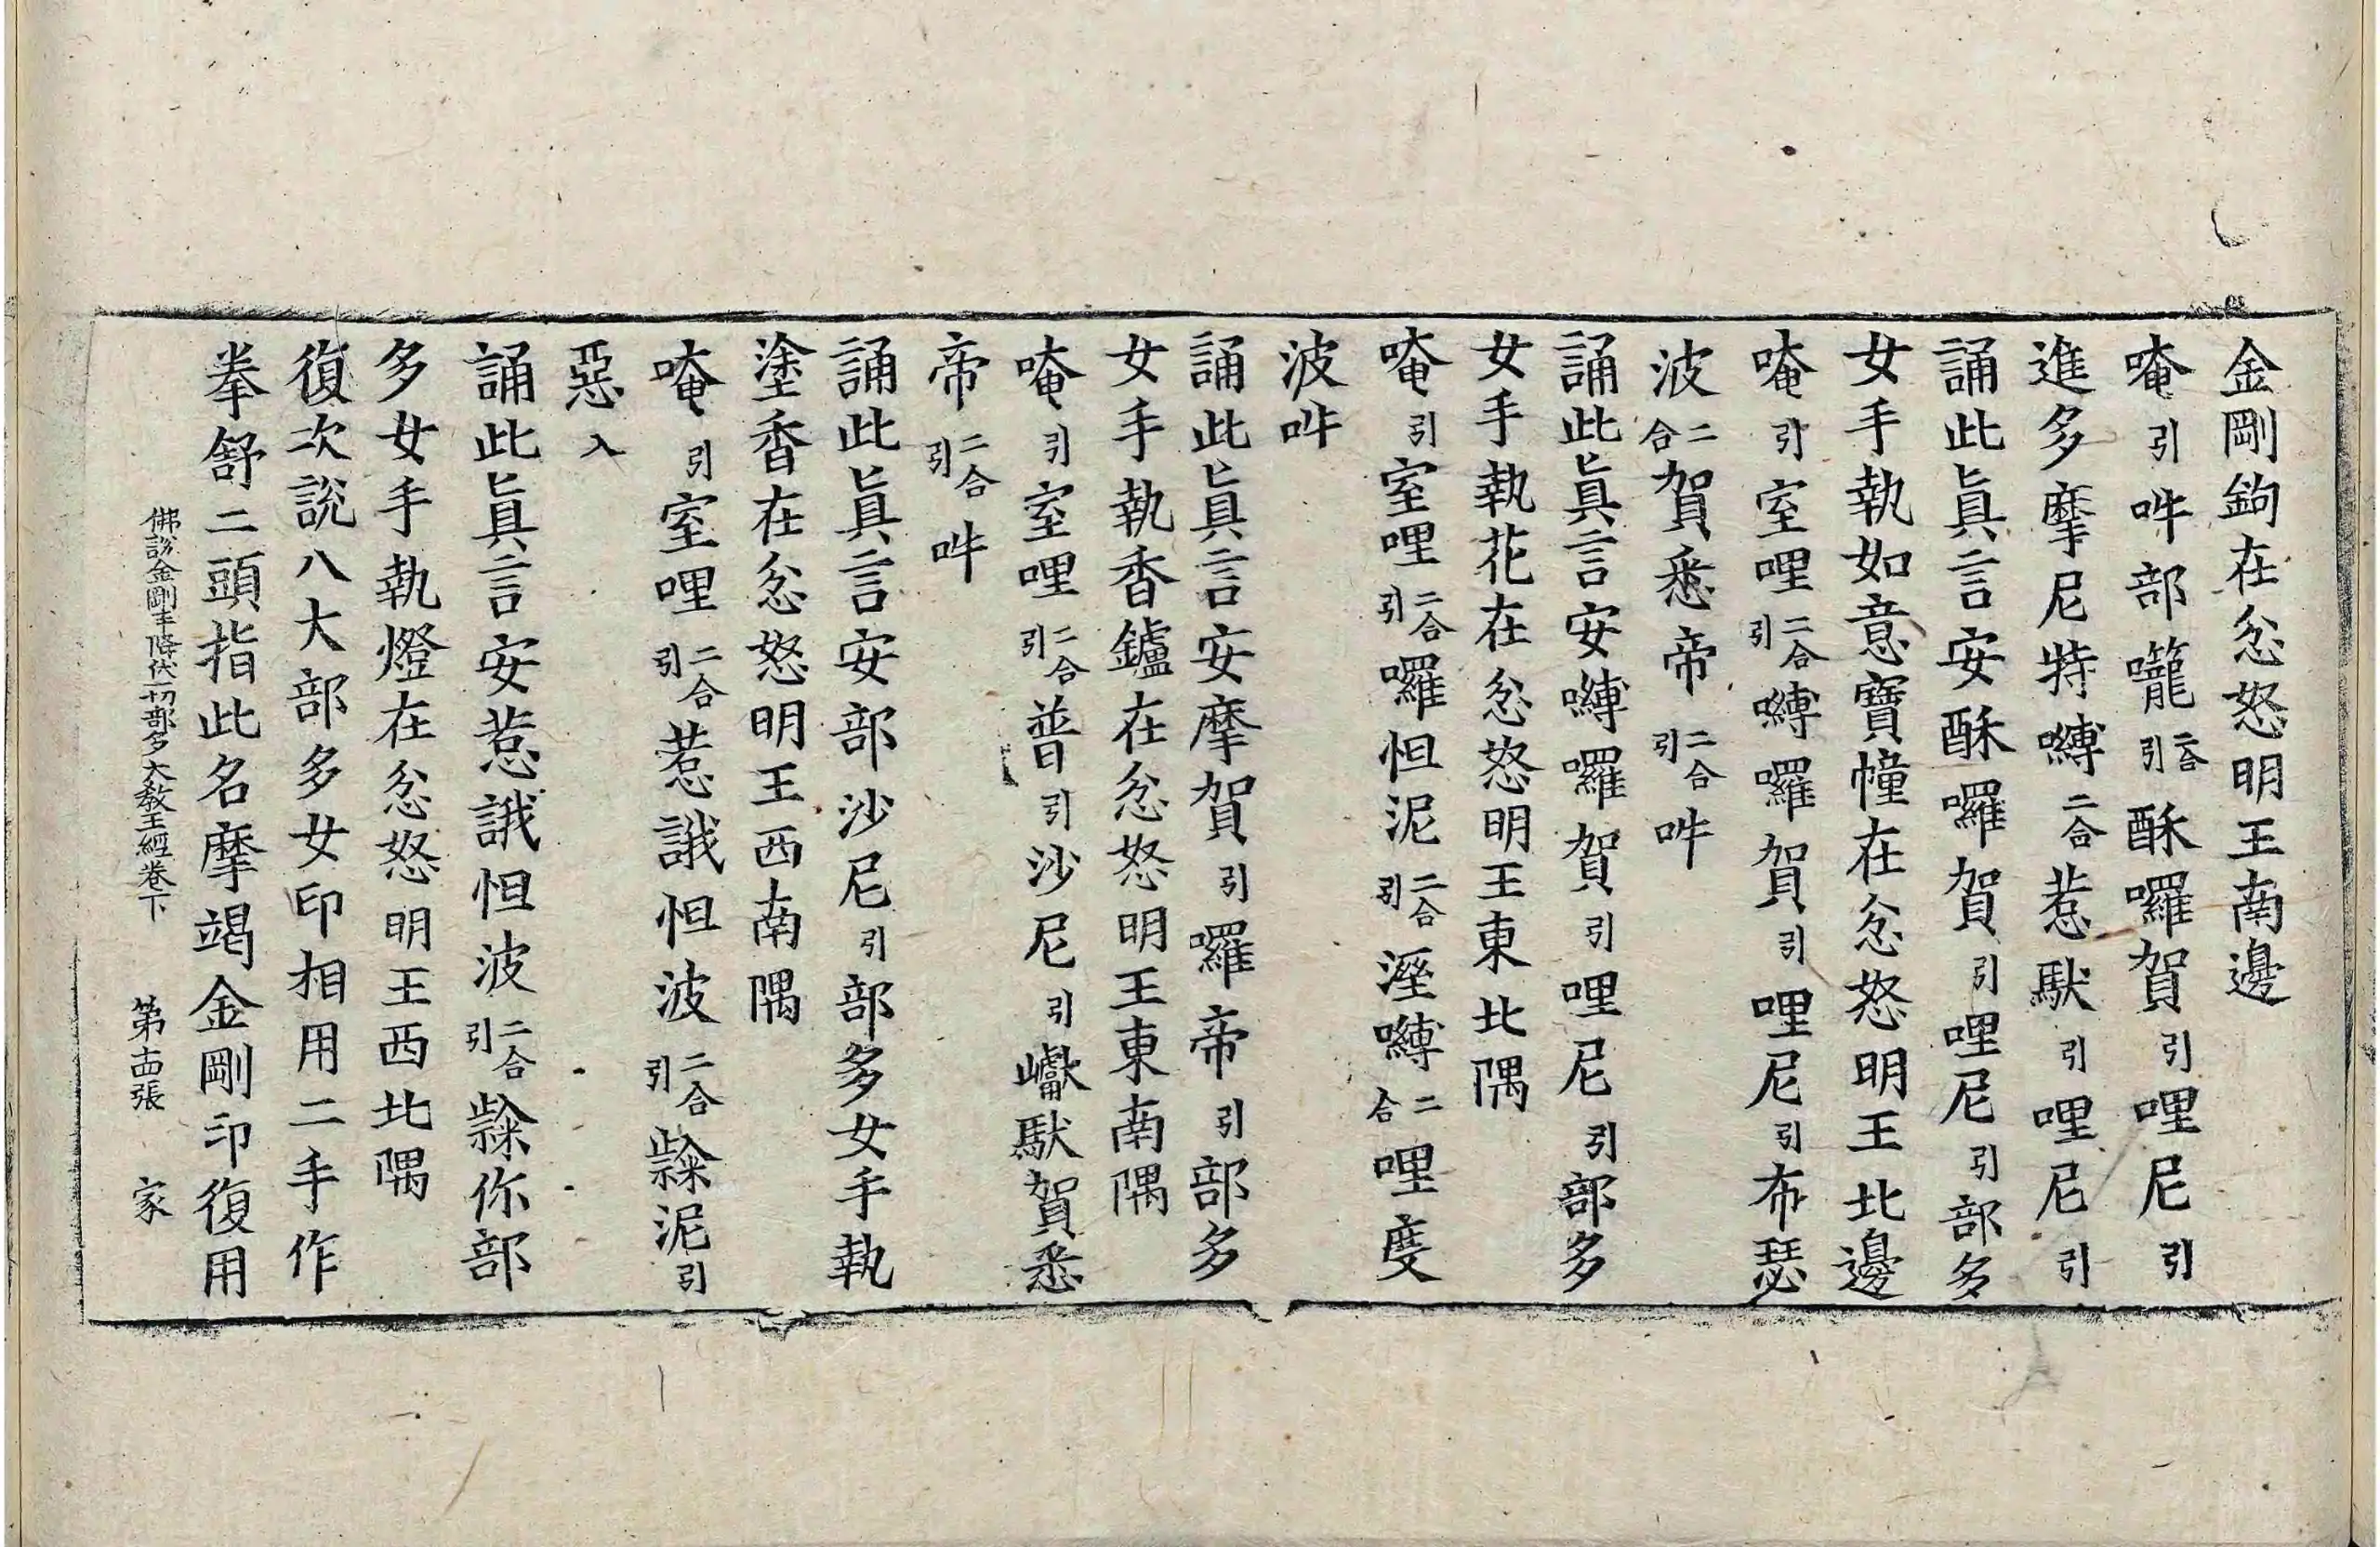 金剛鉤在忿怒明王南邊
唵引吽部嚨二合引酥囉賀引哩尼引
進多摩尼特嚩二合惹馱引哩尼引
誦此眞言安酥囉賀引哩尼引部多
女手執如意寶幢在忿怒明王北邊
唵引室哩二合引嚩囉賀引哩尼引布瑟
波二合賀悉帝二合引吽
誦此眞言安嚩囉賀引哩尼引部多
女手執花在忿怒明王東北隅
唵引室哩二合引囉怛泥二合引濕嚩二合哩度
波吽
誦此眞言安摩賀引囉帝引部多
女手執香鑪在忿怒明王東南隅
唵引室哩二合引普引沙尼引巘馱賀悉
帝二合引吽
誦此眞言安部沙尼引部多女手執
塗香在忿怒明王西南隅
唵引室哩二合引惹誐怛波二合引泥引
惡入
誦此眞言安惹誐怛波二合引你部
多女手執燈在忿怒明王西北隅
復次說八大部多女印相用二手作
拳舒二頭指此名摩竭金剛印復用
佛說金剛手降伏一切部多大教王經卷下　第十四張　家